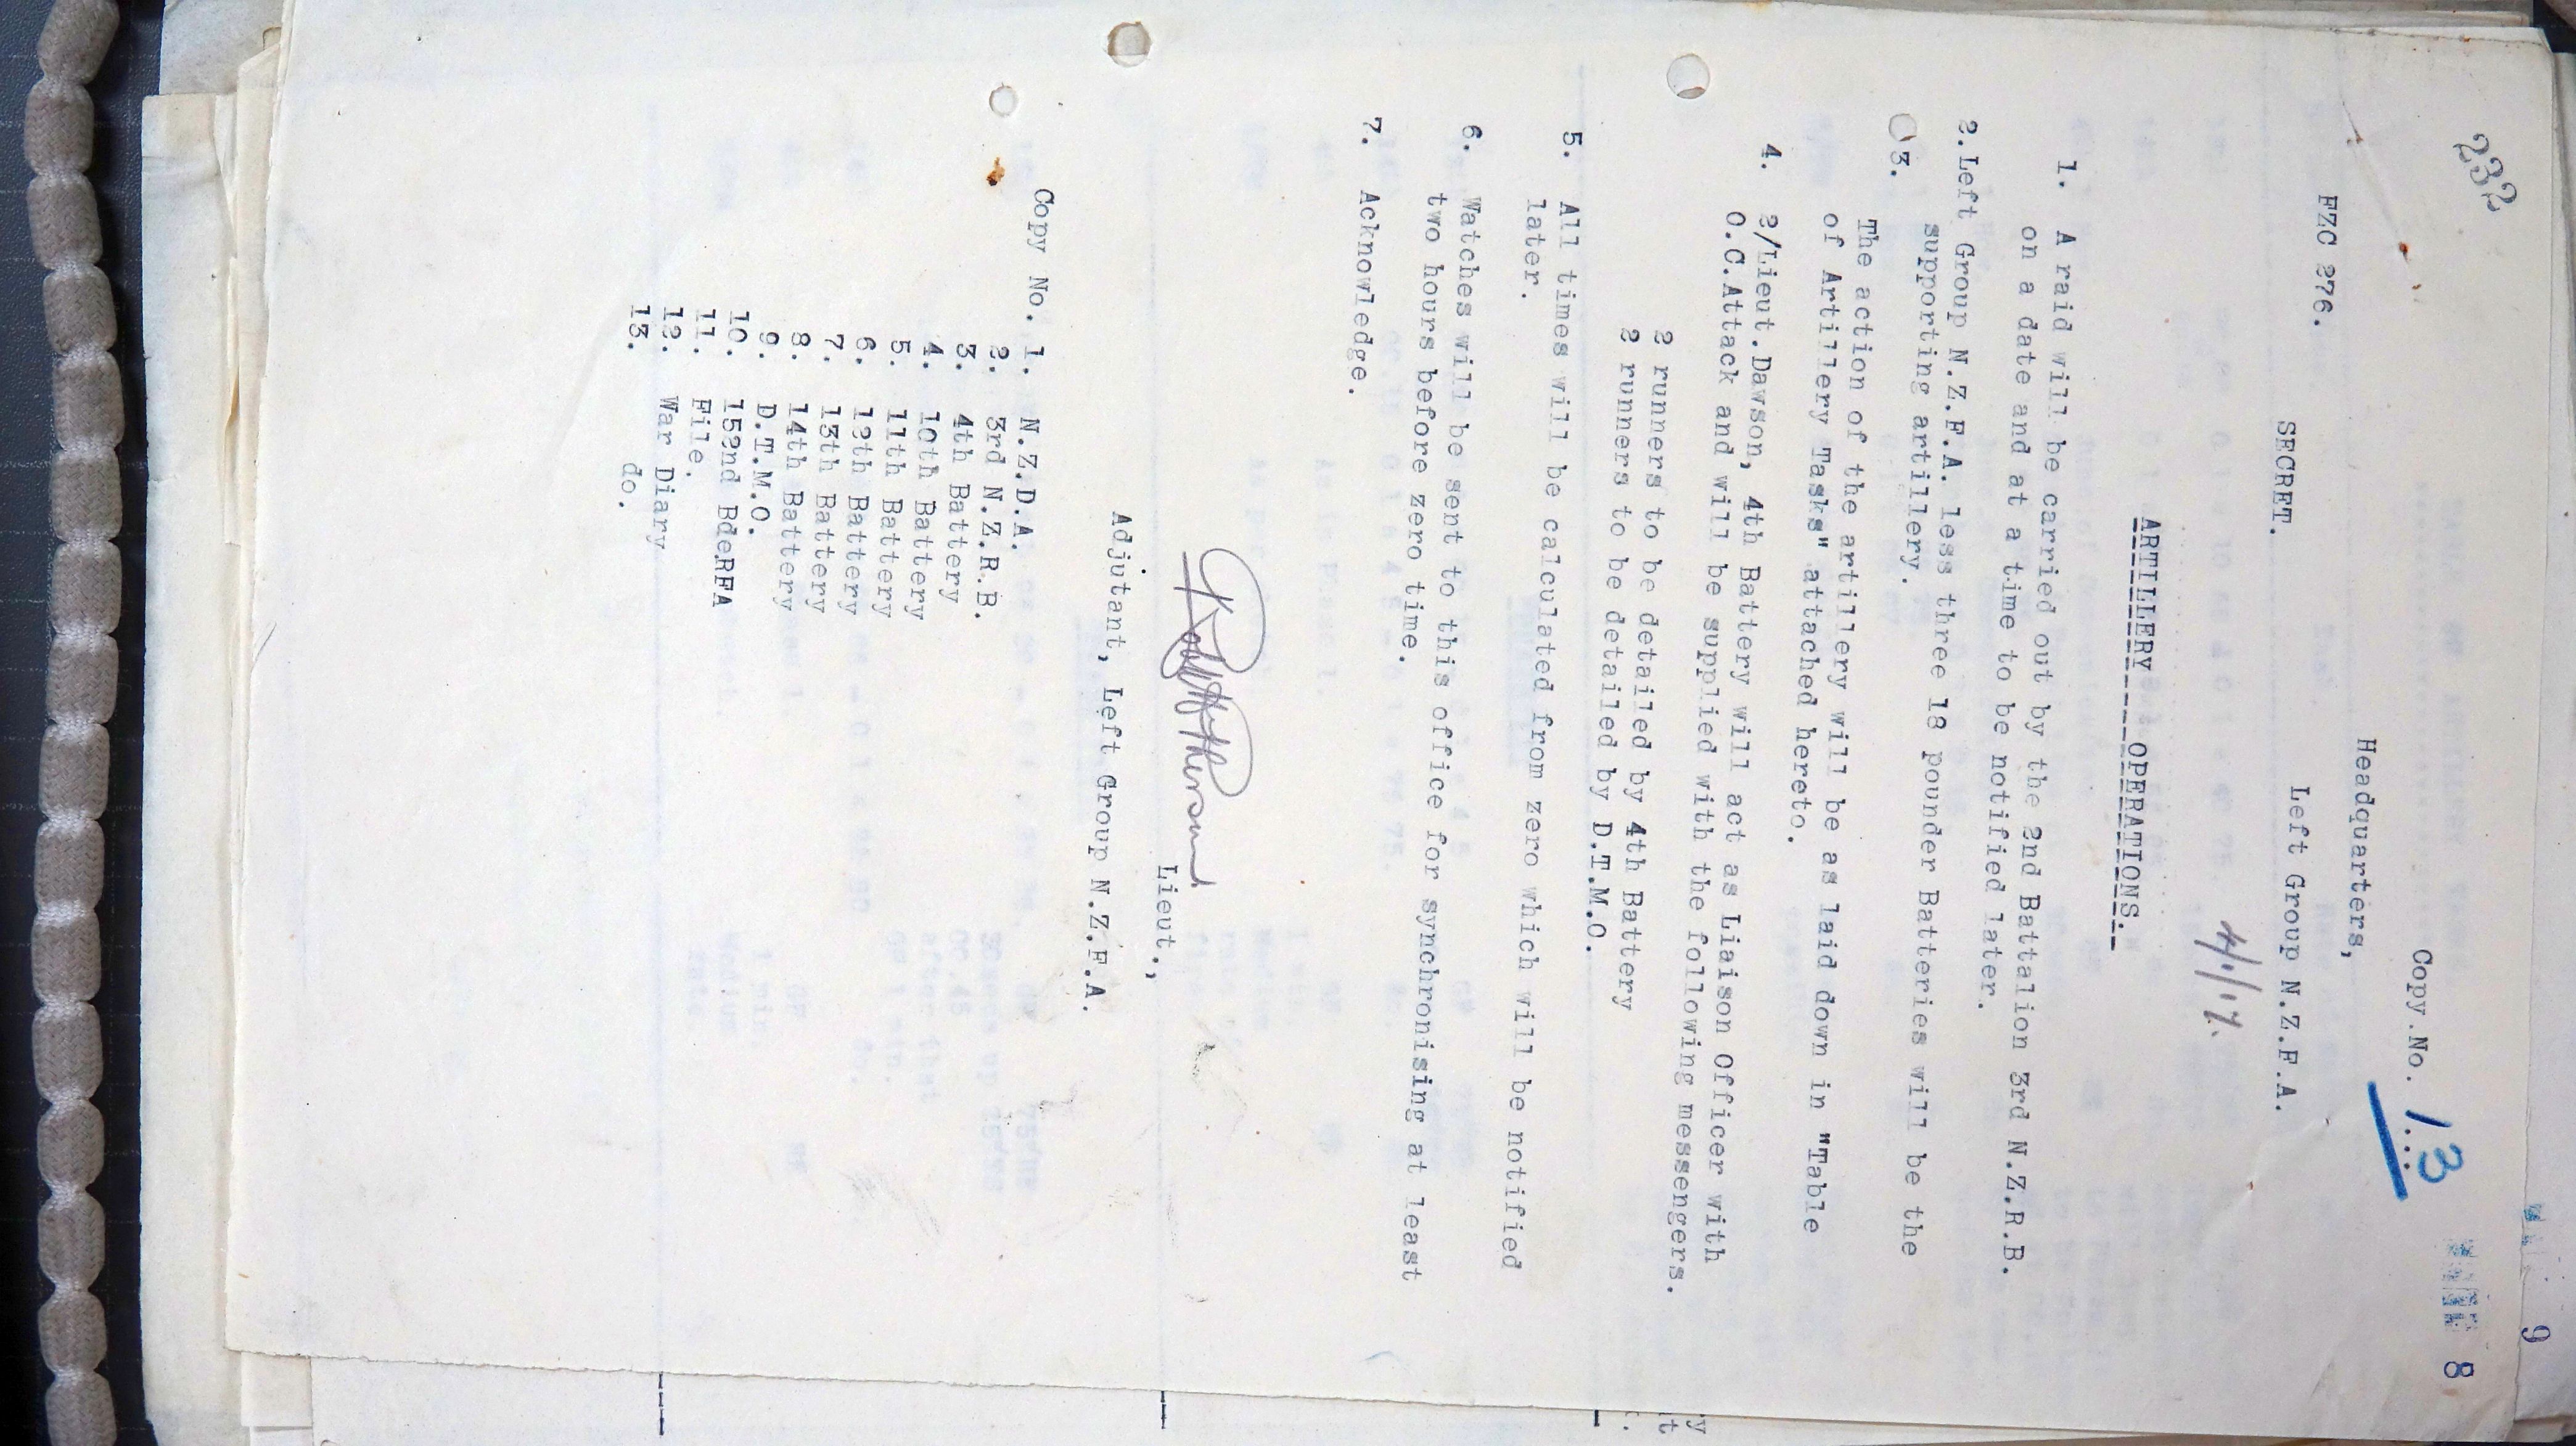 232
8
9
Copy No. 13
FZC 276.
Headquarters,
SECRET.
Left Group N.Z.F.A.
4/1/17.
ARTILLERY OPERATIONS.
1. A raid will be carried out by the 2nd Battalion 3rd N.Z.R.B.
on a date and at a time to be notified later.
2. Left Group N.Z.F.A. less three 18 pounder Batteries will be the
supporting artillery.
3. The action of the artillery will be as laid down in "Table
of Artillery Tasks" attached hereto.
4. 2/Lieut.Dawson, 4th Battery will act as Liaison Officer with
O.C.Attack and will be supplied with the following messengers.
2 runners to be detailed by 4th Battery
2 runners to be detailed by D.T.M.O.
5. All times will be calculated from zero which will be notified
later.
6. Watches will be sent to this office for synchronising at least
two hours before zero time.
7. Acknowledge.
Lieut.,
Adjutant, Left Group N.Z.F.A.
Copy No. 1. N.Z.D.A.
2. 3rd N.Z.R.B.
3. 4th Battery
4. 10th Battery
5. 11th Battery
6. 12th Battery
7. 13th Battery
8. 14th Battery
9. D.T.M.O.
10. 152nd BdeRFA
11. File.
12. War Diary
13. do.